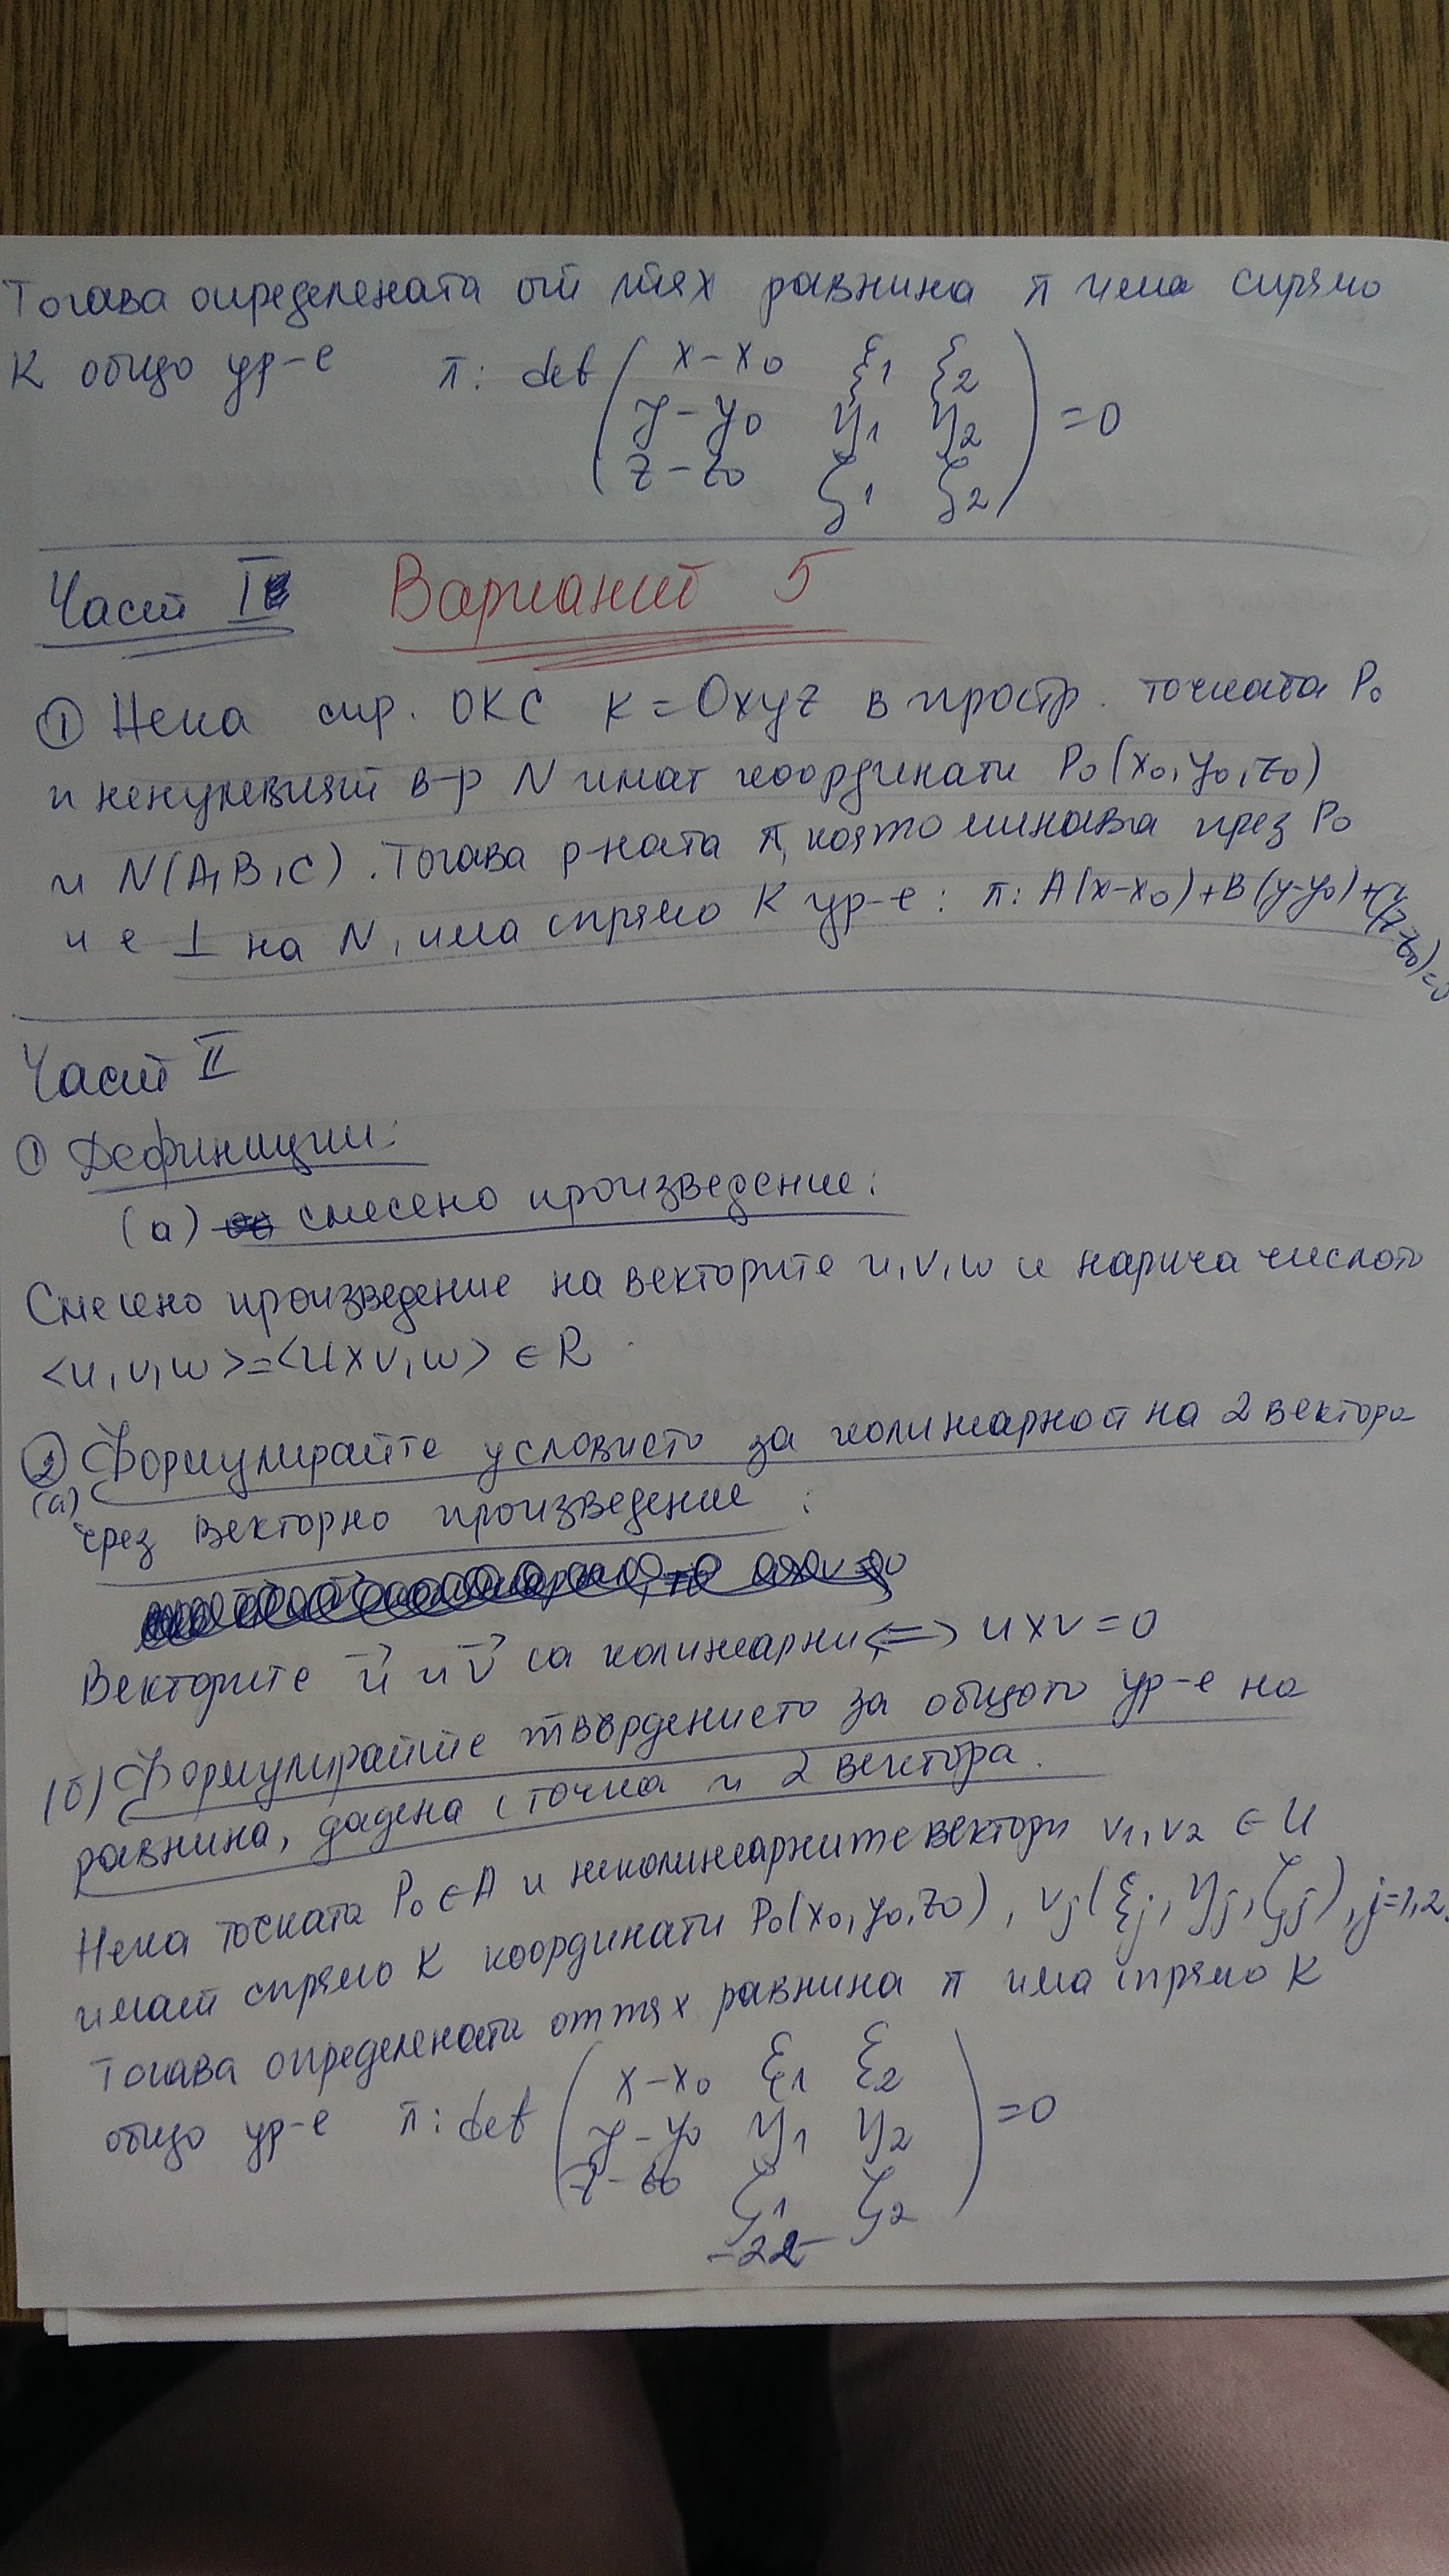 Тогава определената от тях равнина π има спрямо
К общо ур-е π: det ( x-x₀ ξ₁ ξ₂
y-y₀ η₁ η₂ ) =0
z-z₀ ζ₁ ζ₂
Част I Вариант 5
① Нека спр. ОКС К=Oxyz в простр. точката P₀
и ненулевият в-р N имат координати P₀(x₀,y₀,z₀)
и N(A,B,C). Тогава р-ната π, която минава през P₀
и е ⊥ на N, има спрямо К ур-е: π: A(x-x₀)+B(y-y₀)+C(z-z₀)=0
Част II
① Дефиниции:
(а) смесено произведение:
Смесено произведение на векторите u,v,w се нарича числото
<u,v,w>=<u×v,w> ∈ R
② Формулирайте условието за колинеарност на 2 вектора
(а) чрез векторно произведение:
Векторите u⃗ и v⃗ са колинеарни <=> u×v=0
(б) Формулирайте твърдението за общото ур-е на
равнина, дадена с точка и 2 вектора.
Нека точката P₀∈A и неколинеарните вектори v₁,v₂ ∈ U
имат спрямо К координати P₀(x₀,y₀,z₀), vⱼ(ξⱼ,ηⱼ,ζⱼ), j=1,2.
Тогава определената от тях равнина π има спрямо К
общо ур-е π: det ( x-x₀ ξ₁ ξ₂
y-y₀ η₁ η₂ ) =0
z-z₀ ζ₁ ζ₂
-22-